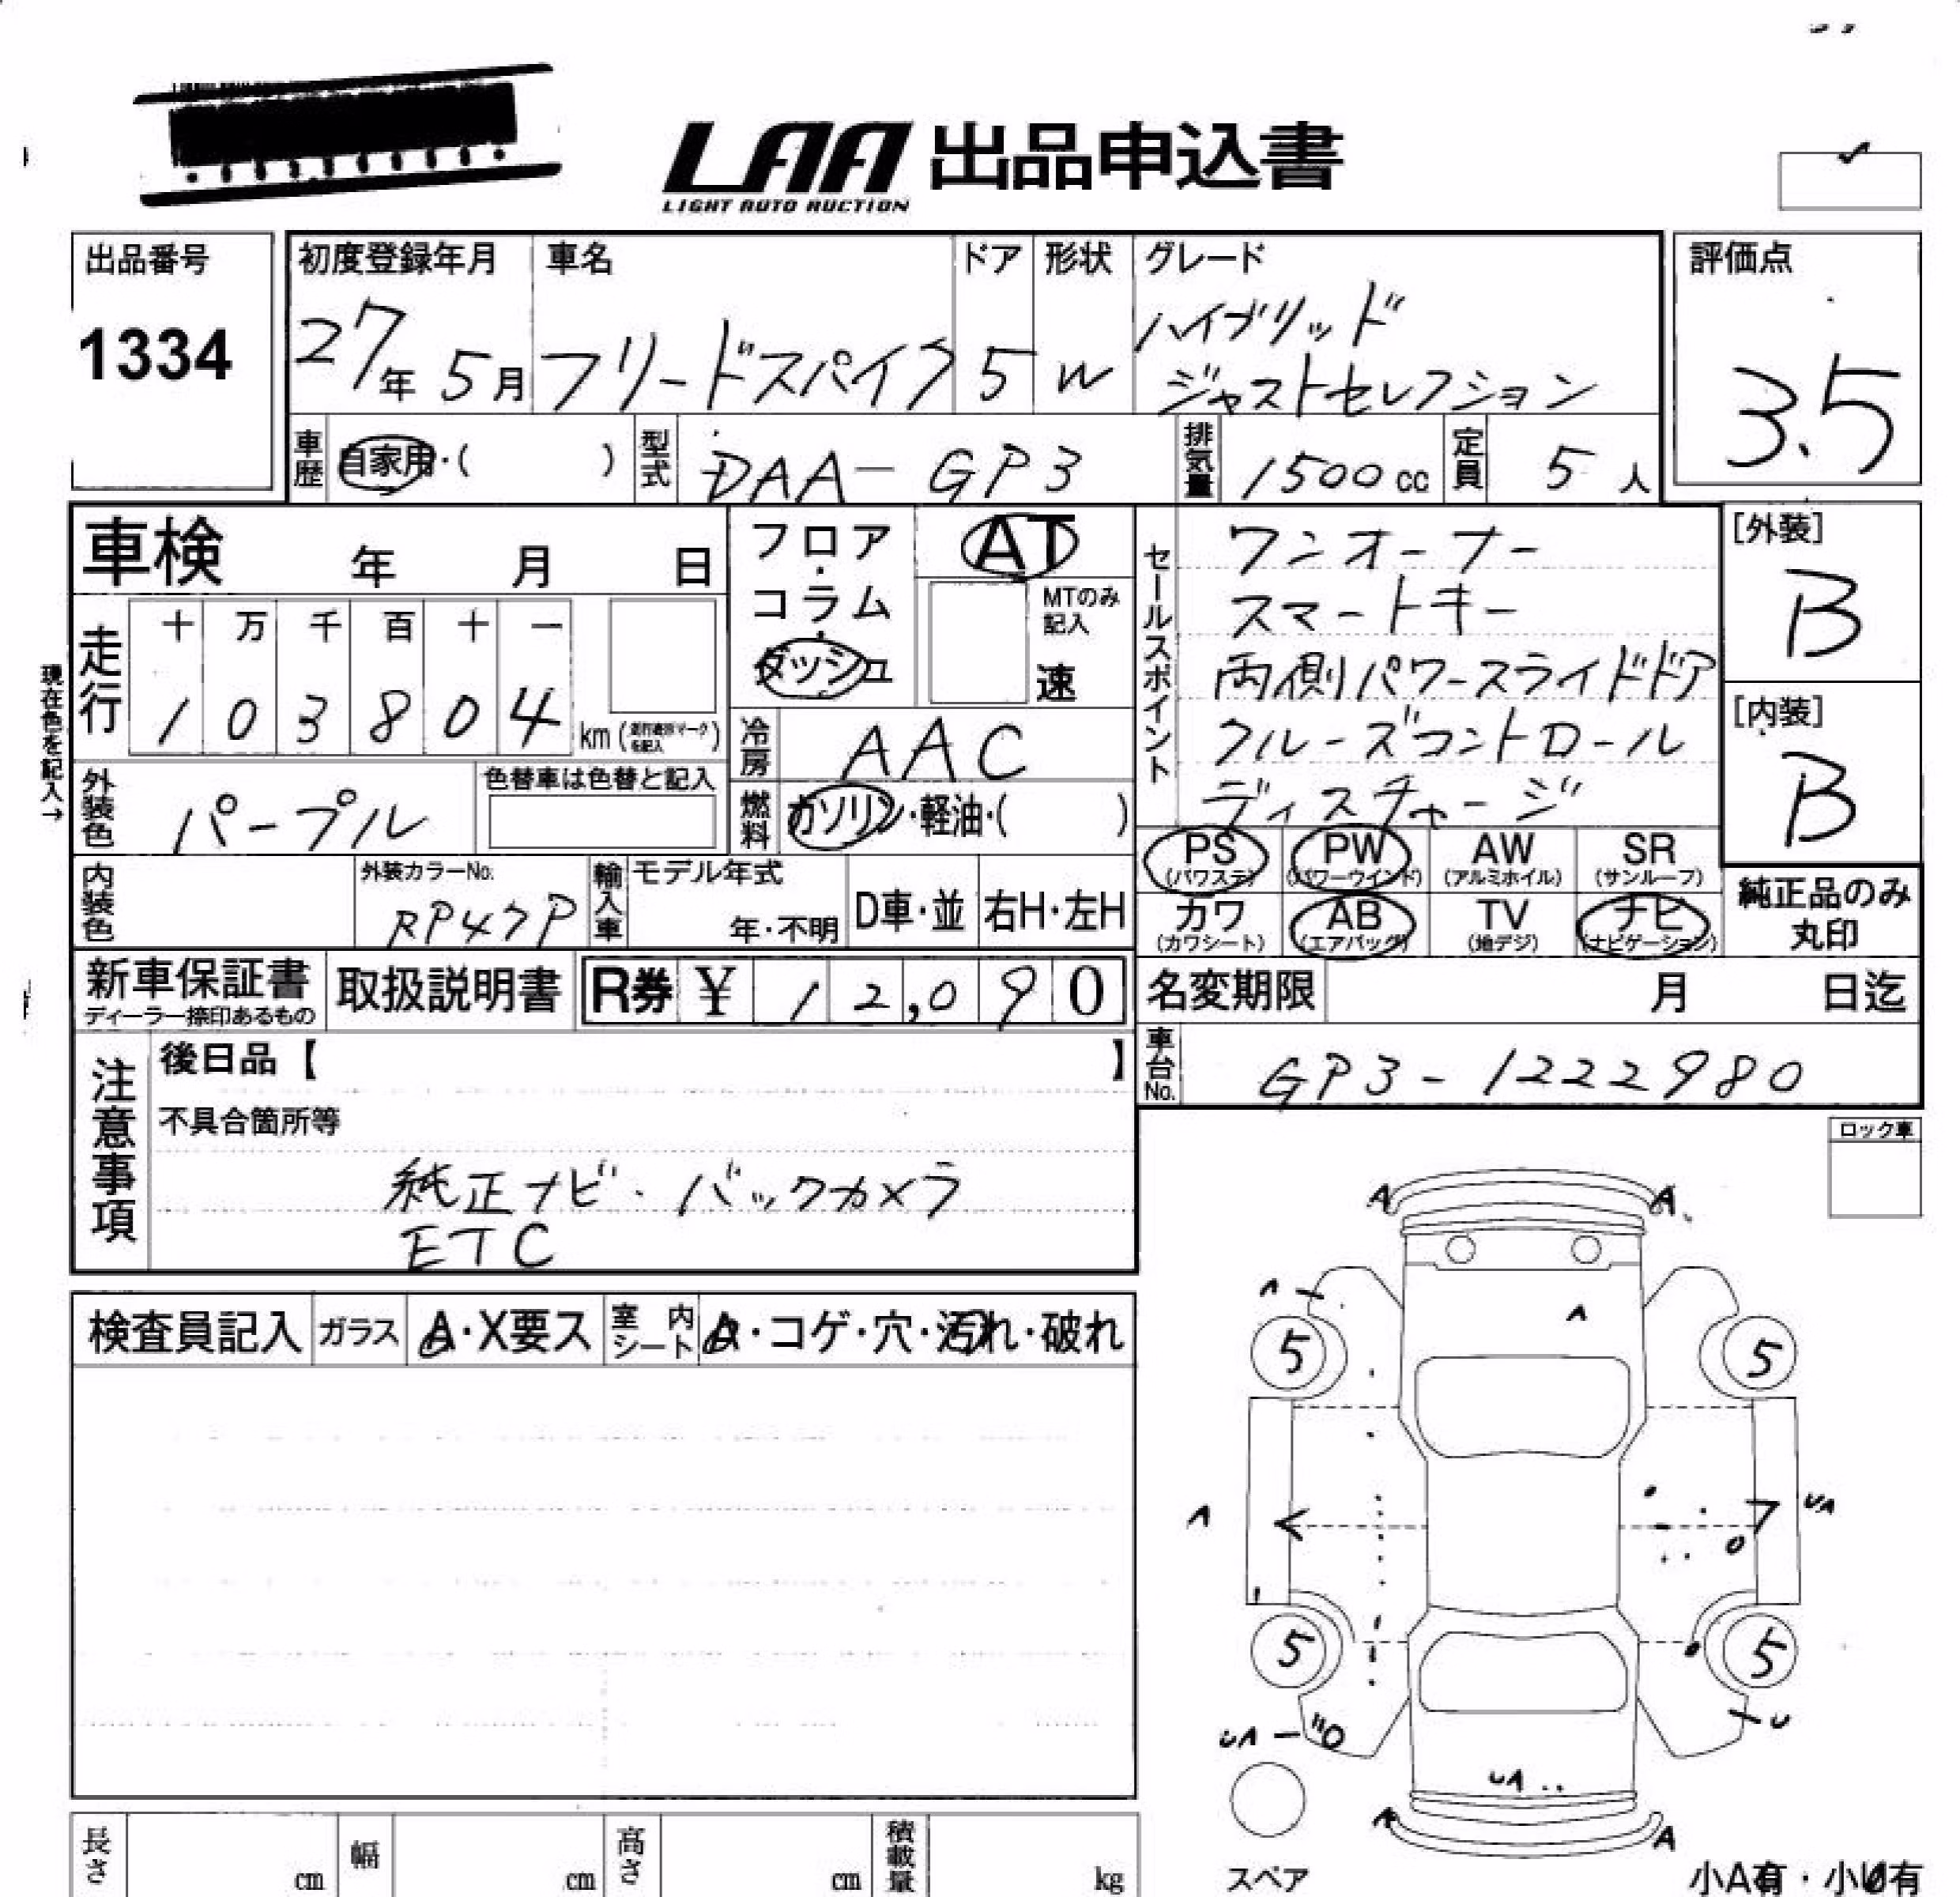 LAA 出品申込書
LIGHT AUTO AUCTION
出品番号
1334
初度登録年月
27年 5月
車名
フリードスパイク
ドア
5
形状
W
グレード
ハイブリッド
ジャストセレクション
評価点
3.5
車歴 自家用・( )
型式 DAA-GP3
排気量 1500 cc
定員 5 人
車検 年 月 日
フロア・コラム・ダッシュ
AT
MTのみ記入
速
セールスポイント
ワンオーナー
スマートキー
両側パワースライドドア
クルーズコントロール
ディスチャージ
[外装]
B
[内装]
B
現在色を記入→
走行
十 万 千 百 十 一
1 0 3 8 0 4 km
冷房 AAC
外装色 パープル
色替車は色替と記入
燃料 ガソリン・軽油・( )
PS (パワステ)
PW (パワーウインド)
AW (アルミホイル)
SR (サンルーフ)
カワ (カワシート)
AB (エアバッグ)
TV (地デジ)
ナビ (ナビゲーション)
純正品のみ
丸印
内装色
外装カラーNo.
RP47P
輸入車
モデル年式
年・不明
D車・並
右H・左H
新車保証書
ディーラー捺印あるもの
取扱説明書
R券 ¥ 12,090
名変期限 月 日迄
車台No. GP3-1222980
注意事項
後日品【 】
不具合箇所等
純正ナビ・バックカメラ
ETC
ロック車
検査員記入 ガラス A・X要ス 室内シート A・コゲ・穴・汚れ・破れ
A A
A
A
5 5
A UA
5 5
UA U
UA
A A
スペア
小A有・小U有
長さ cm 幅 cm 高さ cm 積載量 kg